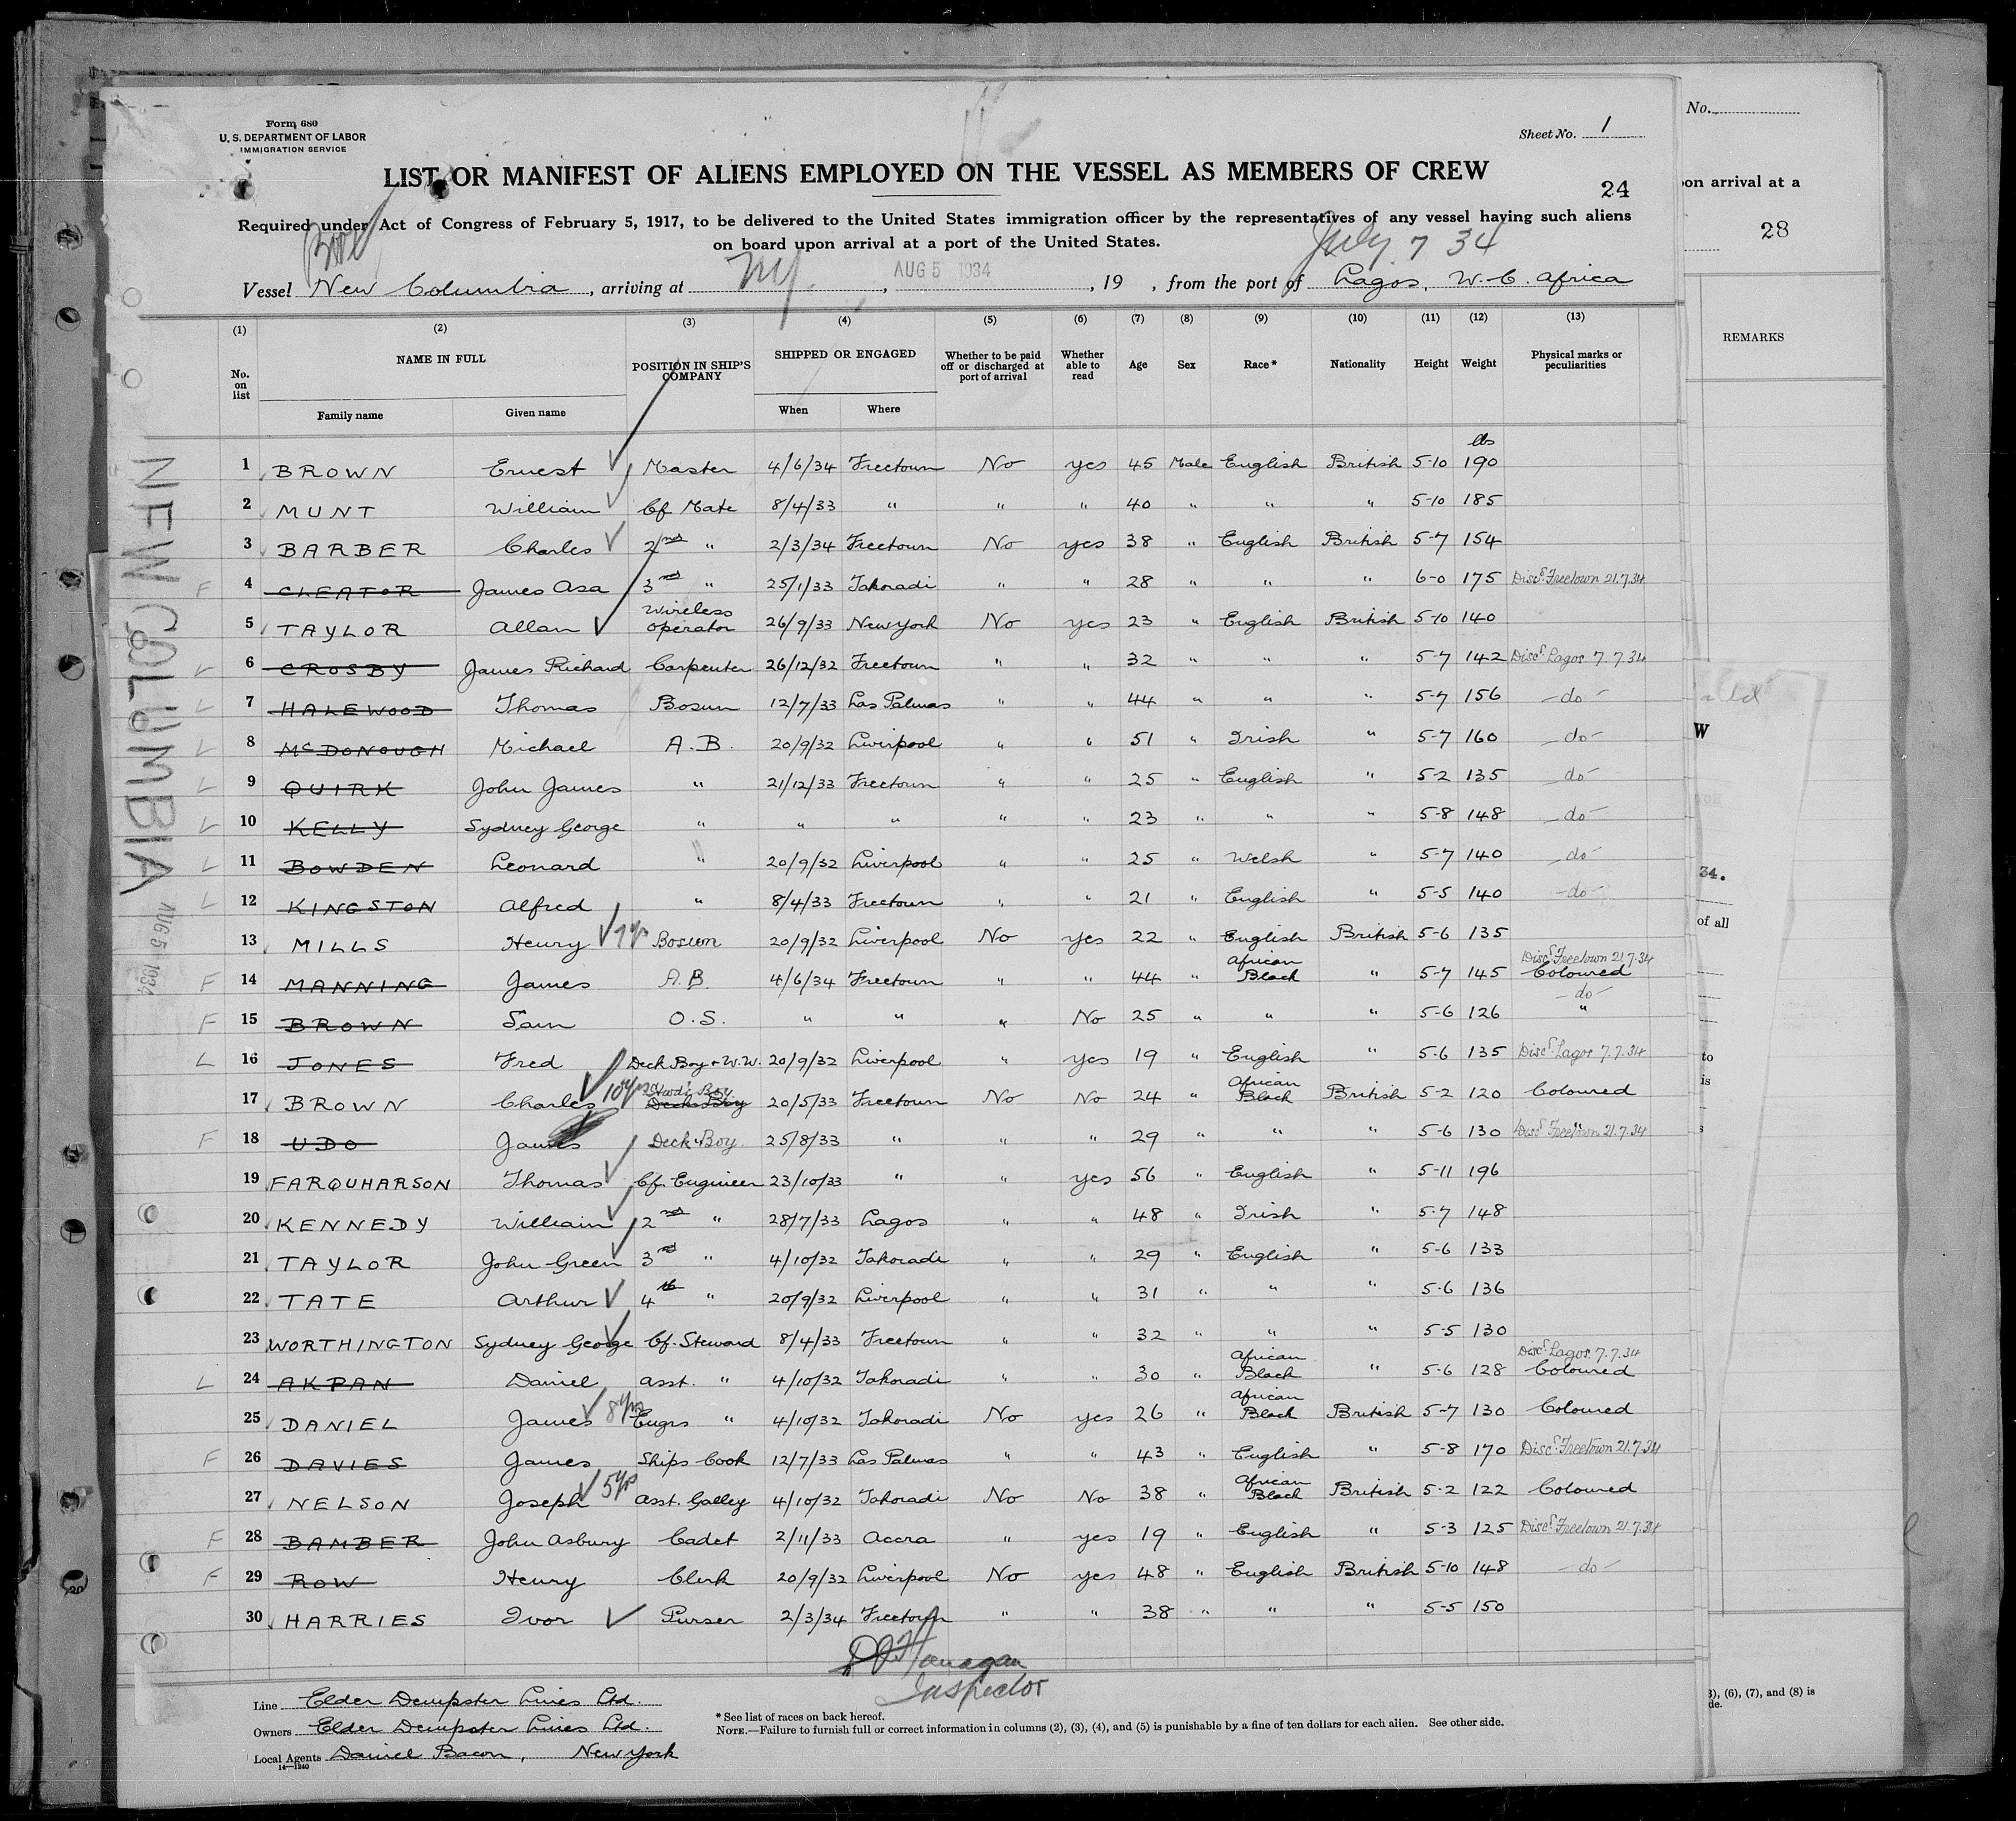 Form 680
U. S. DEPARTMENT OF LABOR
IMMIGRATION SERVICE
Sheet No. 1
No.
LIST OR MANIFEST OF ALIENS EMPLOYED ON THE VESSEL AS MEMBERS OF CREW
24
on arrival at a
28
Required under Act of Congress of February 5, 1917, to be delivered to the United States immigration officer by the representatives of any vessel having such aliens
on board upon arrival at a port of the United States.
July 7 34
Vessel New Columbia, arriving at NY., AUG 5 1934, 19 , from the port of Lagos, W. C. Africa
(1) (2) (3) (4) (5) (6) (7) (8) (9) (10) (11) (12) (13)
No. on list NAME IN FULL POSITION IN SHIP'S COMPANY SHIPPED OR ENGAGED Whether to be paid off or discharged at port of arrival Whether able to read Age Sex Race* Nationality Height Weight Physical marks or peculiarities REMARKS
Family name Given name When Where
lbs
1 BROWN Ernest Master 4/6/34 Freetown No yes 45 Male English British 5-10 190
2 MUNT William Cf Mate 8/4/33 " " " 40 " " " 5-10 185
3 BARBER Charles 2nd " 2/3/34 Freetown No yes 38 " English British 5-7 154
F 4 CLEATOR James Asa 3rd " 25/1/33 Takoradi " " 28 " " " 6-0 175 Discd Freetown 21.7.34
5 TAYLOR Allan Wireless operator 26/9/33 New York No yes 23 " English British 5-10 140
L 6 CROSBY James Richard Carpenter 26/12/32 Freetown " " 32 " " " 5-7 142 Discd Lagos 7.7.34
L 7 HALEWOOD Thomas Bosun 12/7/33 Las Palmas " " 44 " " " 5-7 156 -do-
L 8 McDONOUGH Michael A.B. 20/9/32 Liverpool " " 51 " Irish " 5-7 160 -do-
L 9 QUIRK John James " 21/12/33 Freetown " " 25 " English " 5-2 135 -do-
L 10 KELLY Sydney George " " " " " 23 " " " 5-8 148 -do-
L 11 BOWDEN Leonard " 20/9/32 Liverpool " " 25 " Welsh " 5-7 140 -do-
L 12 KINGSTON Alfred " 8/4/33 Freetown " " 21 " English " 5-5 140 -do-
13 MILLS Henry Bosun 20/9/32 Liverpool No yes 22 " English British 5-6 135
F 14 MANNING James A.B. 4/6/34 Freetown " " 44 " African Black " 5-7 145 Discd Freetown 21.7.34 Coloured
F 15 BROWN Sam O.S. " " " No 25 " " " 5-6 126 -do- "
L 16 JONES Fred Deck Boy + W.W. 20/9/32 Liverpool " yes 19 " English " 5-6 135 Discd Lagos 7.7.34
17 BROWN Charles 10 yrs Stwds Boy Deck Boy 20/5/33 Freetown No No 24 " African Black British 5-2 120 Coloured
F 18 UDO James Deck Boy 25/8/33 " " " 29 " " " 5-6 130 " Discd Freetown 21.7.34
19 FARQUHARSON Thomas Cf. Engineer 23/10/33 " " yes 56 " English " 5-11 196
20 KENNEDY William 2nd " 28/7/33 Lagos " " 48 " Irish " 5-7 148
21 TAYLOR John Green 3rd " 4/10/32 Takoradi " " 29 " English " 5-6 133
22 TATE Arthur 4th " 20/9/32 Liverpool " " 31 " " " 5-6 136
23 WORTHINGTON Sydney George Cf. Steward 8/4/33 Freetown " " 32 " " " 5-5 130
L 24 AKPAN Daniel asst. " 4/10/32 Takoradi " " 30 " African Black " 5-6 128 Discd Lagos 7.7.34 Coloured
25 DANIEL James 8 yrs Engrs " 4/10/32 Takoradi No yes 26 " African Black British 5-7 130 Coloured
F 26 DAVIES James Ships Cook 12/7/33 Las Palmas " " 43 " English " 5-8 170 Discd Freetown 21.7.34
27 NELSON Joseph 5 yrs asst. Galley 4/10/32 Takoradi No No 38 " African Black British 5-2 122 Coloured
F 28 BAMBER John Asbury Cadet 2/11/33 Accra " yes 19 " English " 5-3 125 Discd Freetown 21.7.34
F 29 ROW Henry Clerk 20/9/32 Liverpool No yes 48 " English British 5-10 148 -do-
30 HARRIES Ivor Purser 2/3/34 Freetown " " 38 " " " 5-5 150
Flanagan
Inspector
Line Elder Dempster Lines Ltd.
Owners Elder Dempster Lines Ltd.
Local Agents Daniel Bacon, New York
14—1240
* See list of races on back hereof.
NOTE.—Failure to furnish full or correct information in columns (2), (3), (4), and (5) is punishable by a fine of ten dollars for each alien. See other side.
NEW COLUMBIA
AUG 5 1934
W
34.
of all
to
is
3), (6), (7), and (8) is
de.